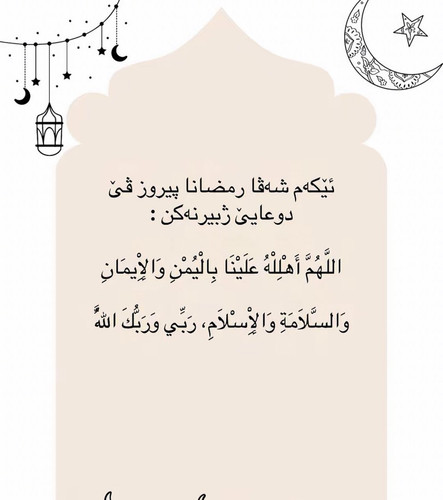 ئێکەم شەڤا رمضانا پیروز ڤێ
دوعایێ ژبیرنەکن :
اللَّهُمَّ أَهْلِلْهُ عَلَيْنَا بِالْيُمْنِ وَالْإِيمَانِ
وَالسَّلَامَةِ وَالْإِسْلَامِ، رَبِّي وَرَبُّكَ اللَّهُ